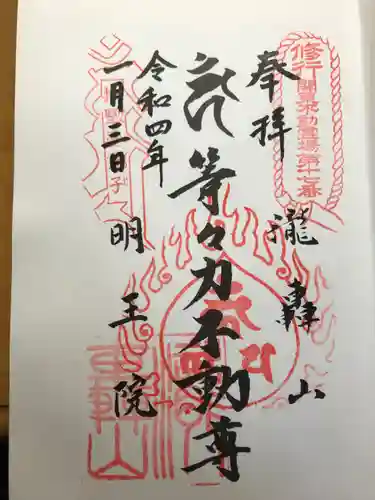 奉拝
瀧轟山
修行
関東不動霊場第十七番
等々力不動尊
令和四年
一月三日
明王院